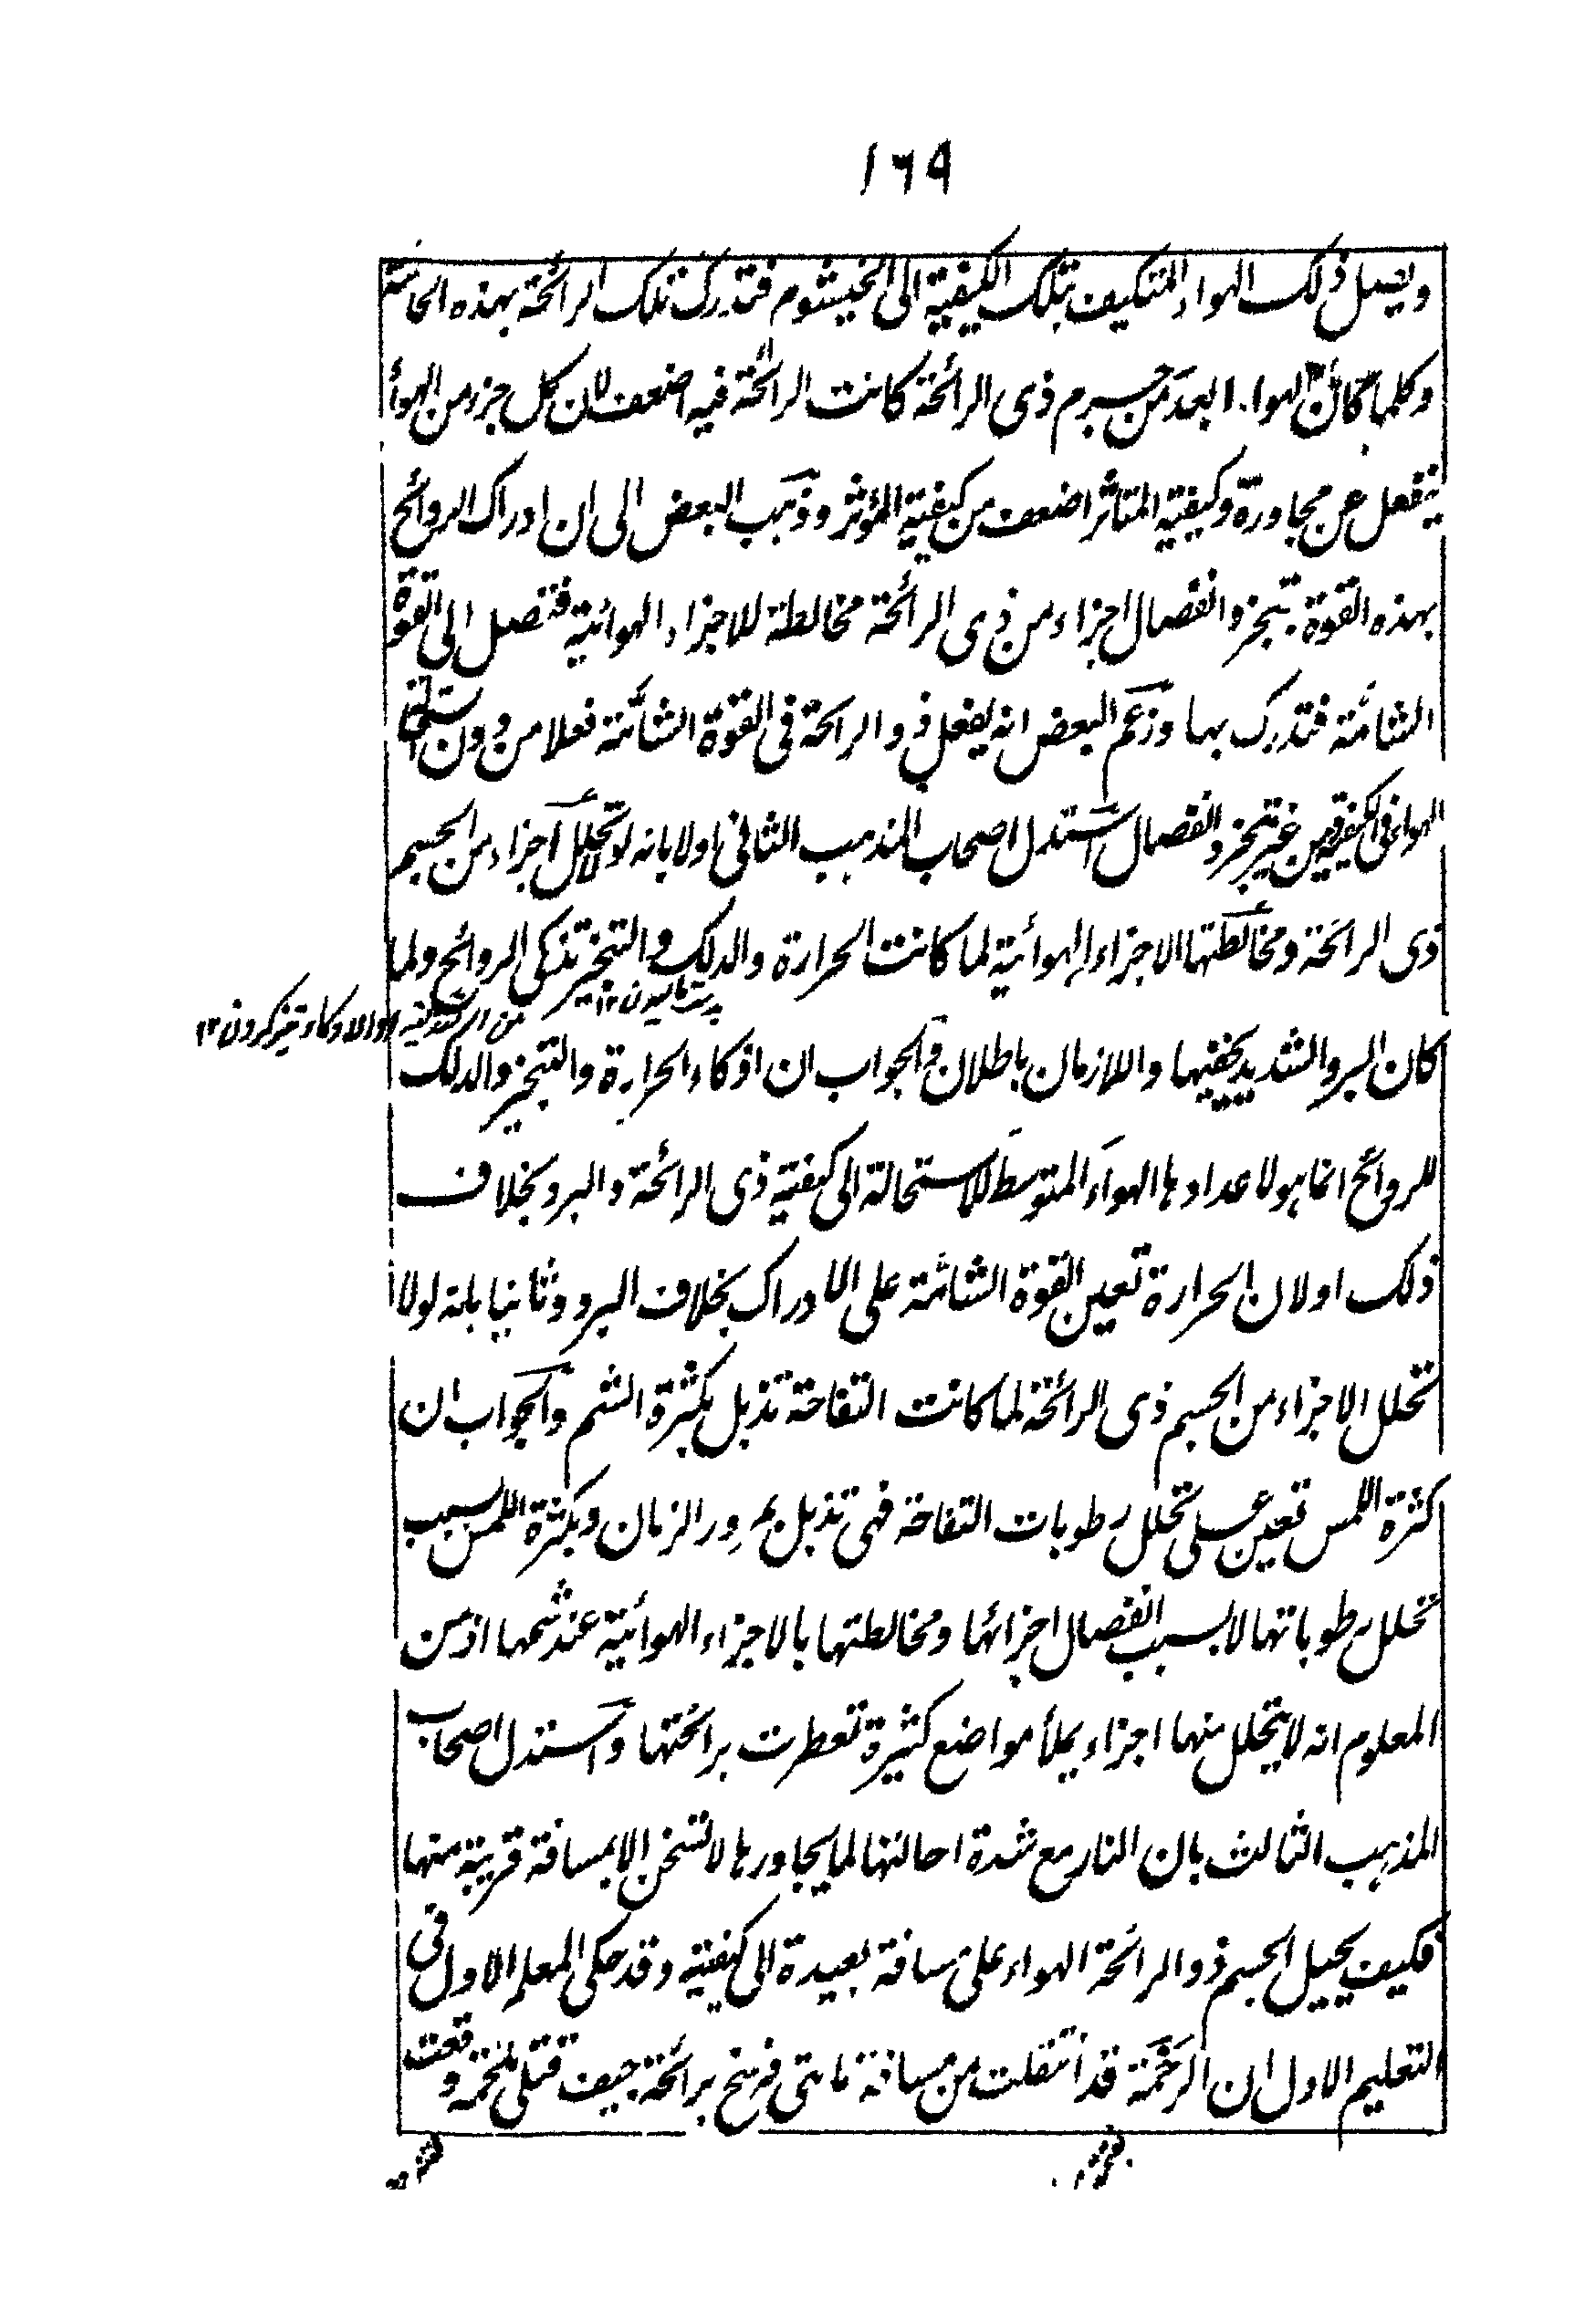 ۱۶۹
ويصل ذلك الهواء المتكيف بتلك الكيفية الى الخيشوم فتدرك تلك الرائحة بهذه الحاسة
وكلما كان الهواء ابعد من جسم ذى الرائحة كانت الرائحة فيه اضعف لان كل جزء من الهواء
ينفعل عن مجاوره وكيفية المتاثر اضعف من كيفية المؤثر وذهب البعض الى ان ادراك الروائح
بهذه القوة بتبخر وانفصال اجزاء من ذى الرائحة مخالطة للاجزاء الهوائية فتصل الى القوة
الشامة فتدرك بها وزعم البعض انه يفعل ذو الرائحة فى القوة الشامة فعلا من دون استحالة
الهواء فى الكيفية ومن غير تبخر وانفصال استدل اصحاب المذهب الثانى اولا بانه لولا تحلل اجزاء من الجسم
ذى الرائحة ومخالطتها الاجزاء الهوائية لما كانت الحرارة والدلك والتبخير تذكى الروائح ولما
كان البرد الشديد يخفيها واللازمان باطلان والجواب ان اذكاء الحرارة والتبخير والدلك
للروائح انما هو لاعدادها الهواء المتوسط للاستحالة الى كيفية ذى الرائحة والبرد بخلاف
ذلك اولا لان الحرارة تعين القوة الشامة على الادراك بخلاف البرد وثانيا بانه لولا
تحلل الاجزاء من الجسم ذى الرائحة لما كانت التفاحة تذبل بكثرة الشم والجواب ان
كثرة اللمس تعين على تحلل رطوبات التفاحة فهى تذبل بمرور الزمان وبكثرة اللمس بسبب
تحلل رطوباتها لا بسبب انفصال اجزائها ومخالطتها بالاجزاء الهوائية عند شمها اذ من
المعلوم انه لا يتحلل منها اجزاء يملأ مواضع كثيرة تعطرت برائحتها واستدل اصحاب
المذهب الثالث بان النار مع شدة احالتها لما يجاورها لا تسخن الا بمسافة قريبة منها
فكيف يحيل الجسم ذو الرائحة الهواء على مسافة بعيدة الى كيفية وقد حكى المعلم الاول فى
التعليم الاول ان الرخمة قد انتقلت من مسافة مأتى فرسخ برائحة جيف قتلى ملحمة وقعت